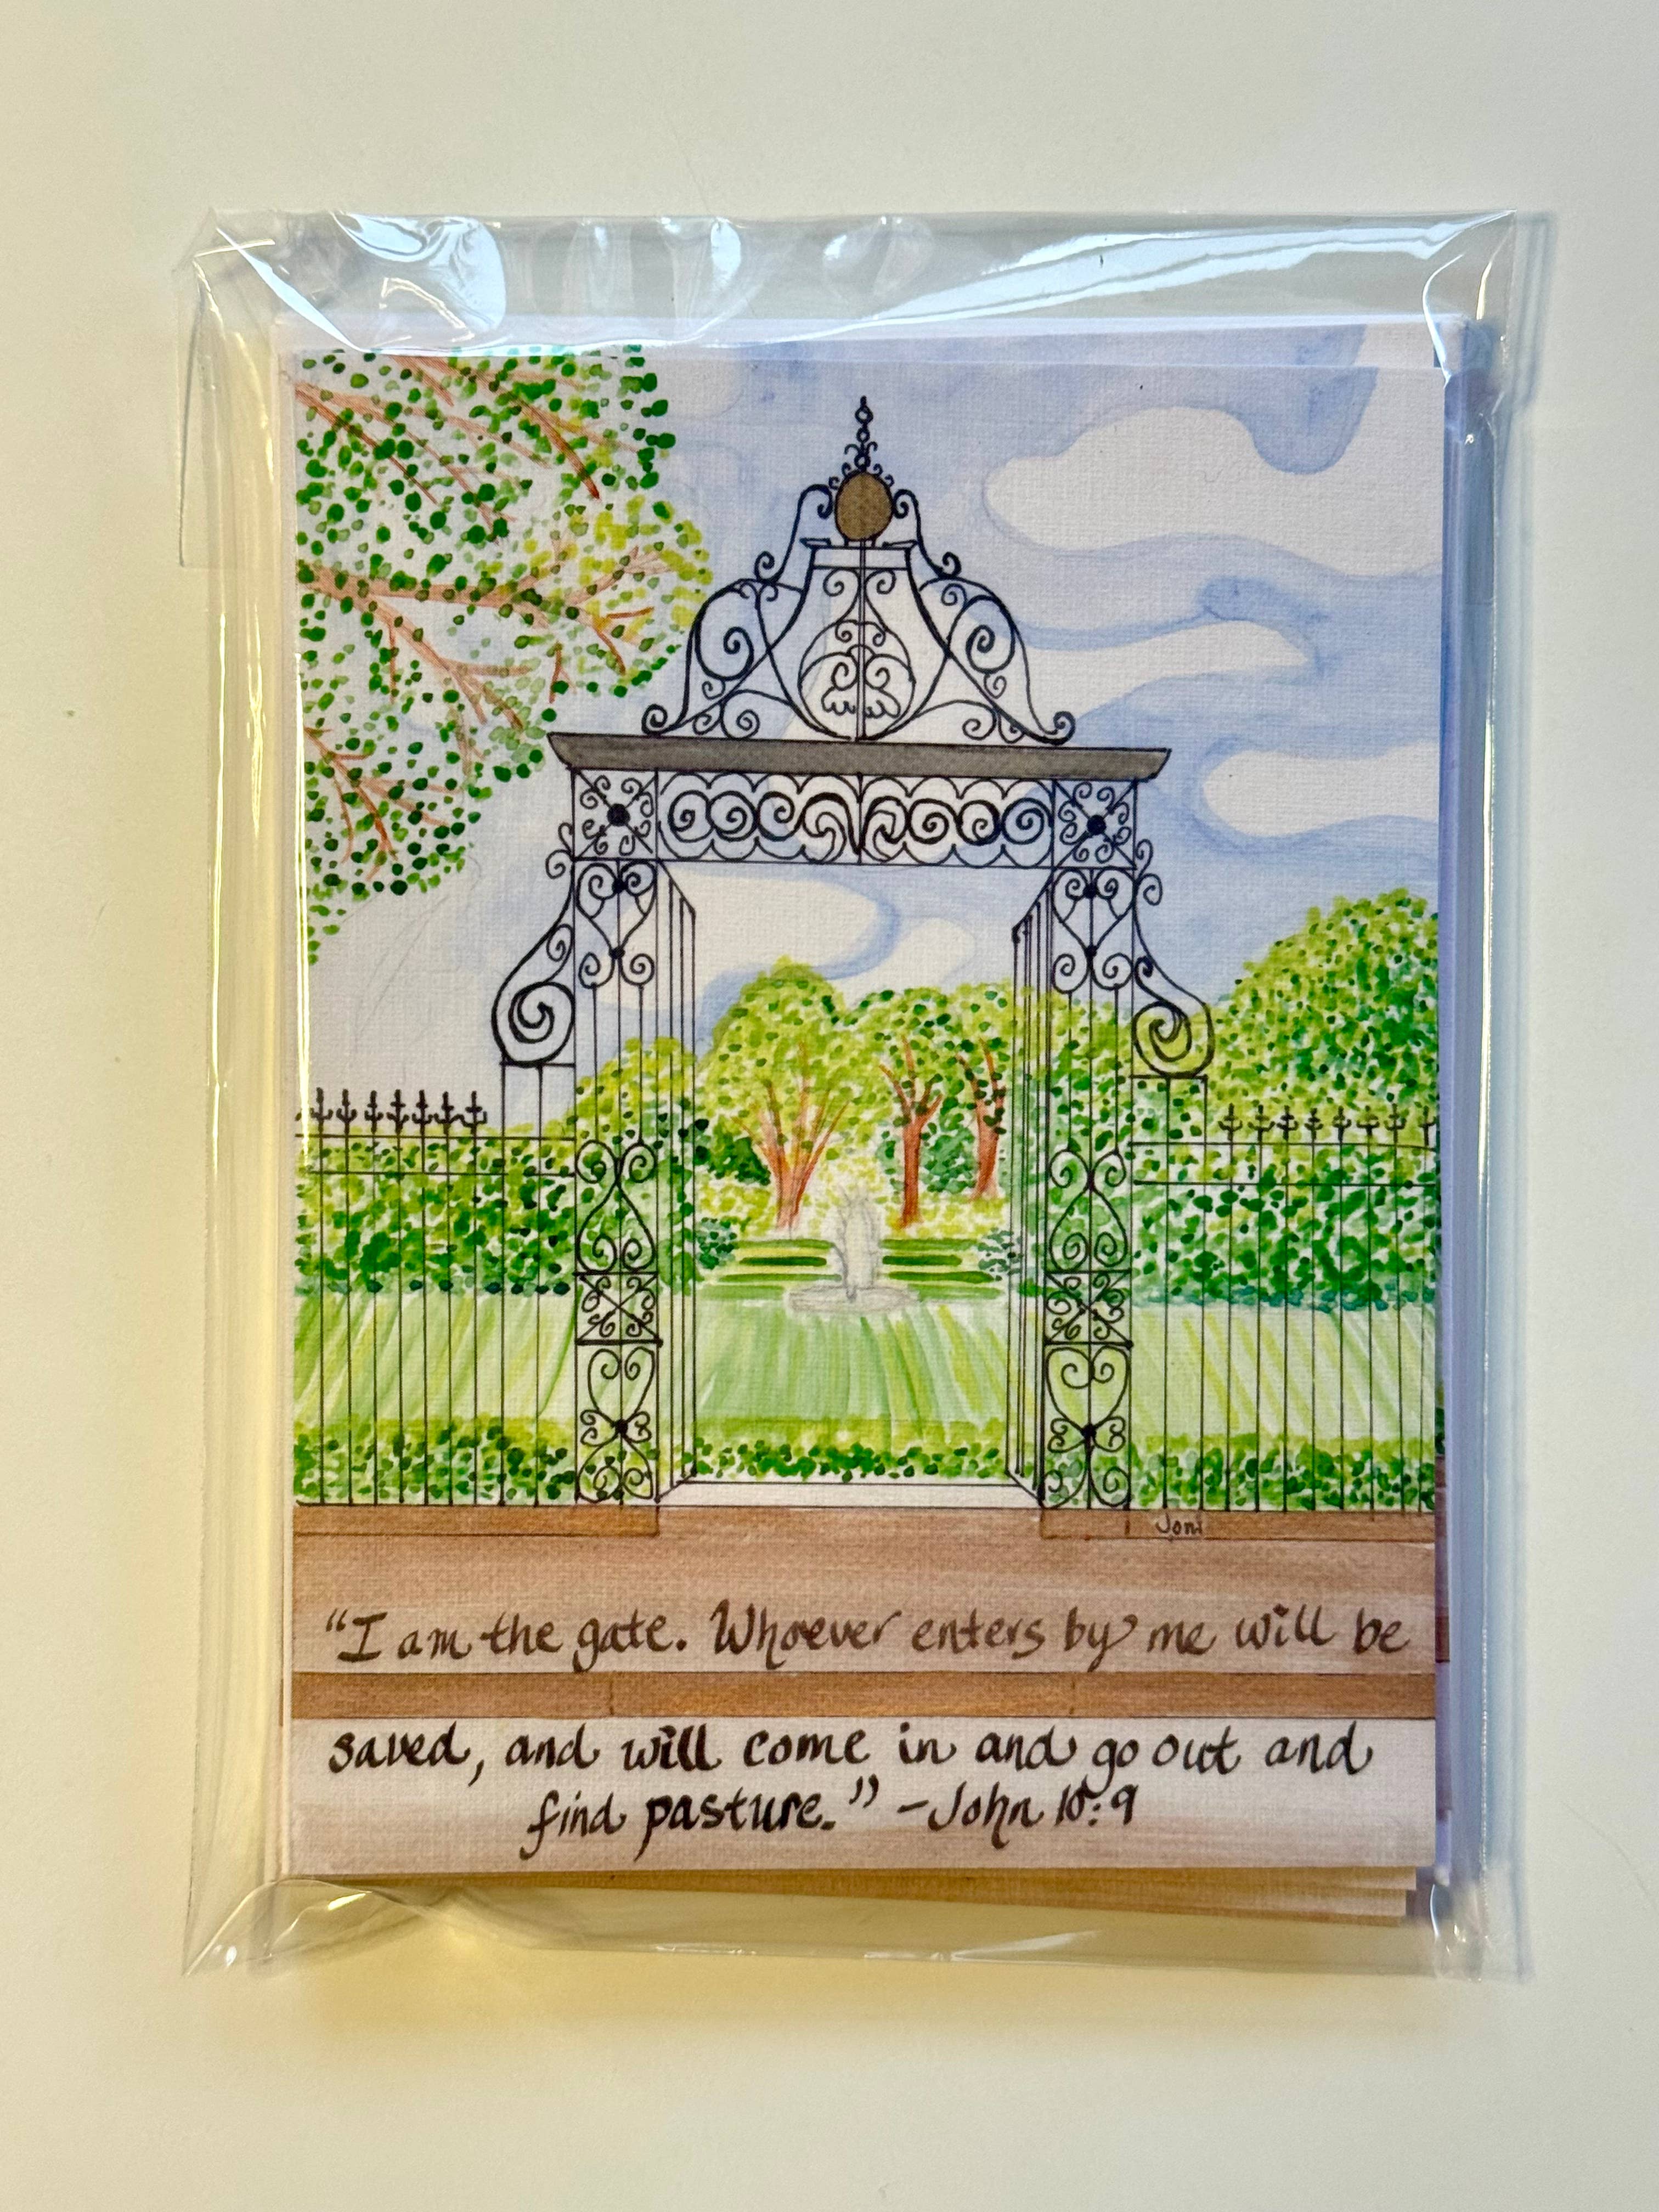 Joni
"I am the gate. Whoever enters by me will be
saved, and will come in and go out and
find pasture." -John 10:9